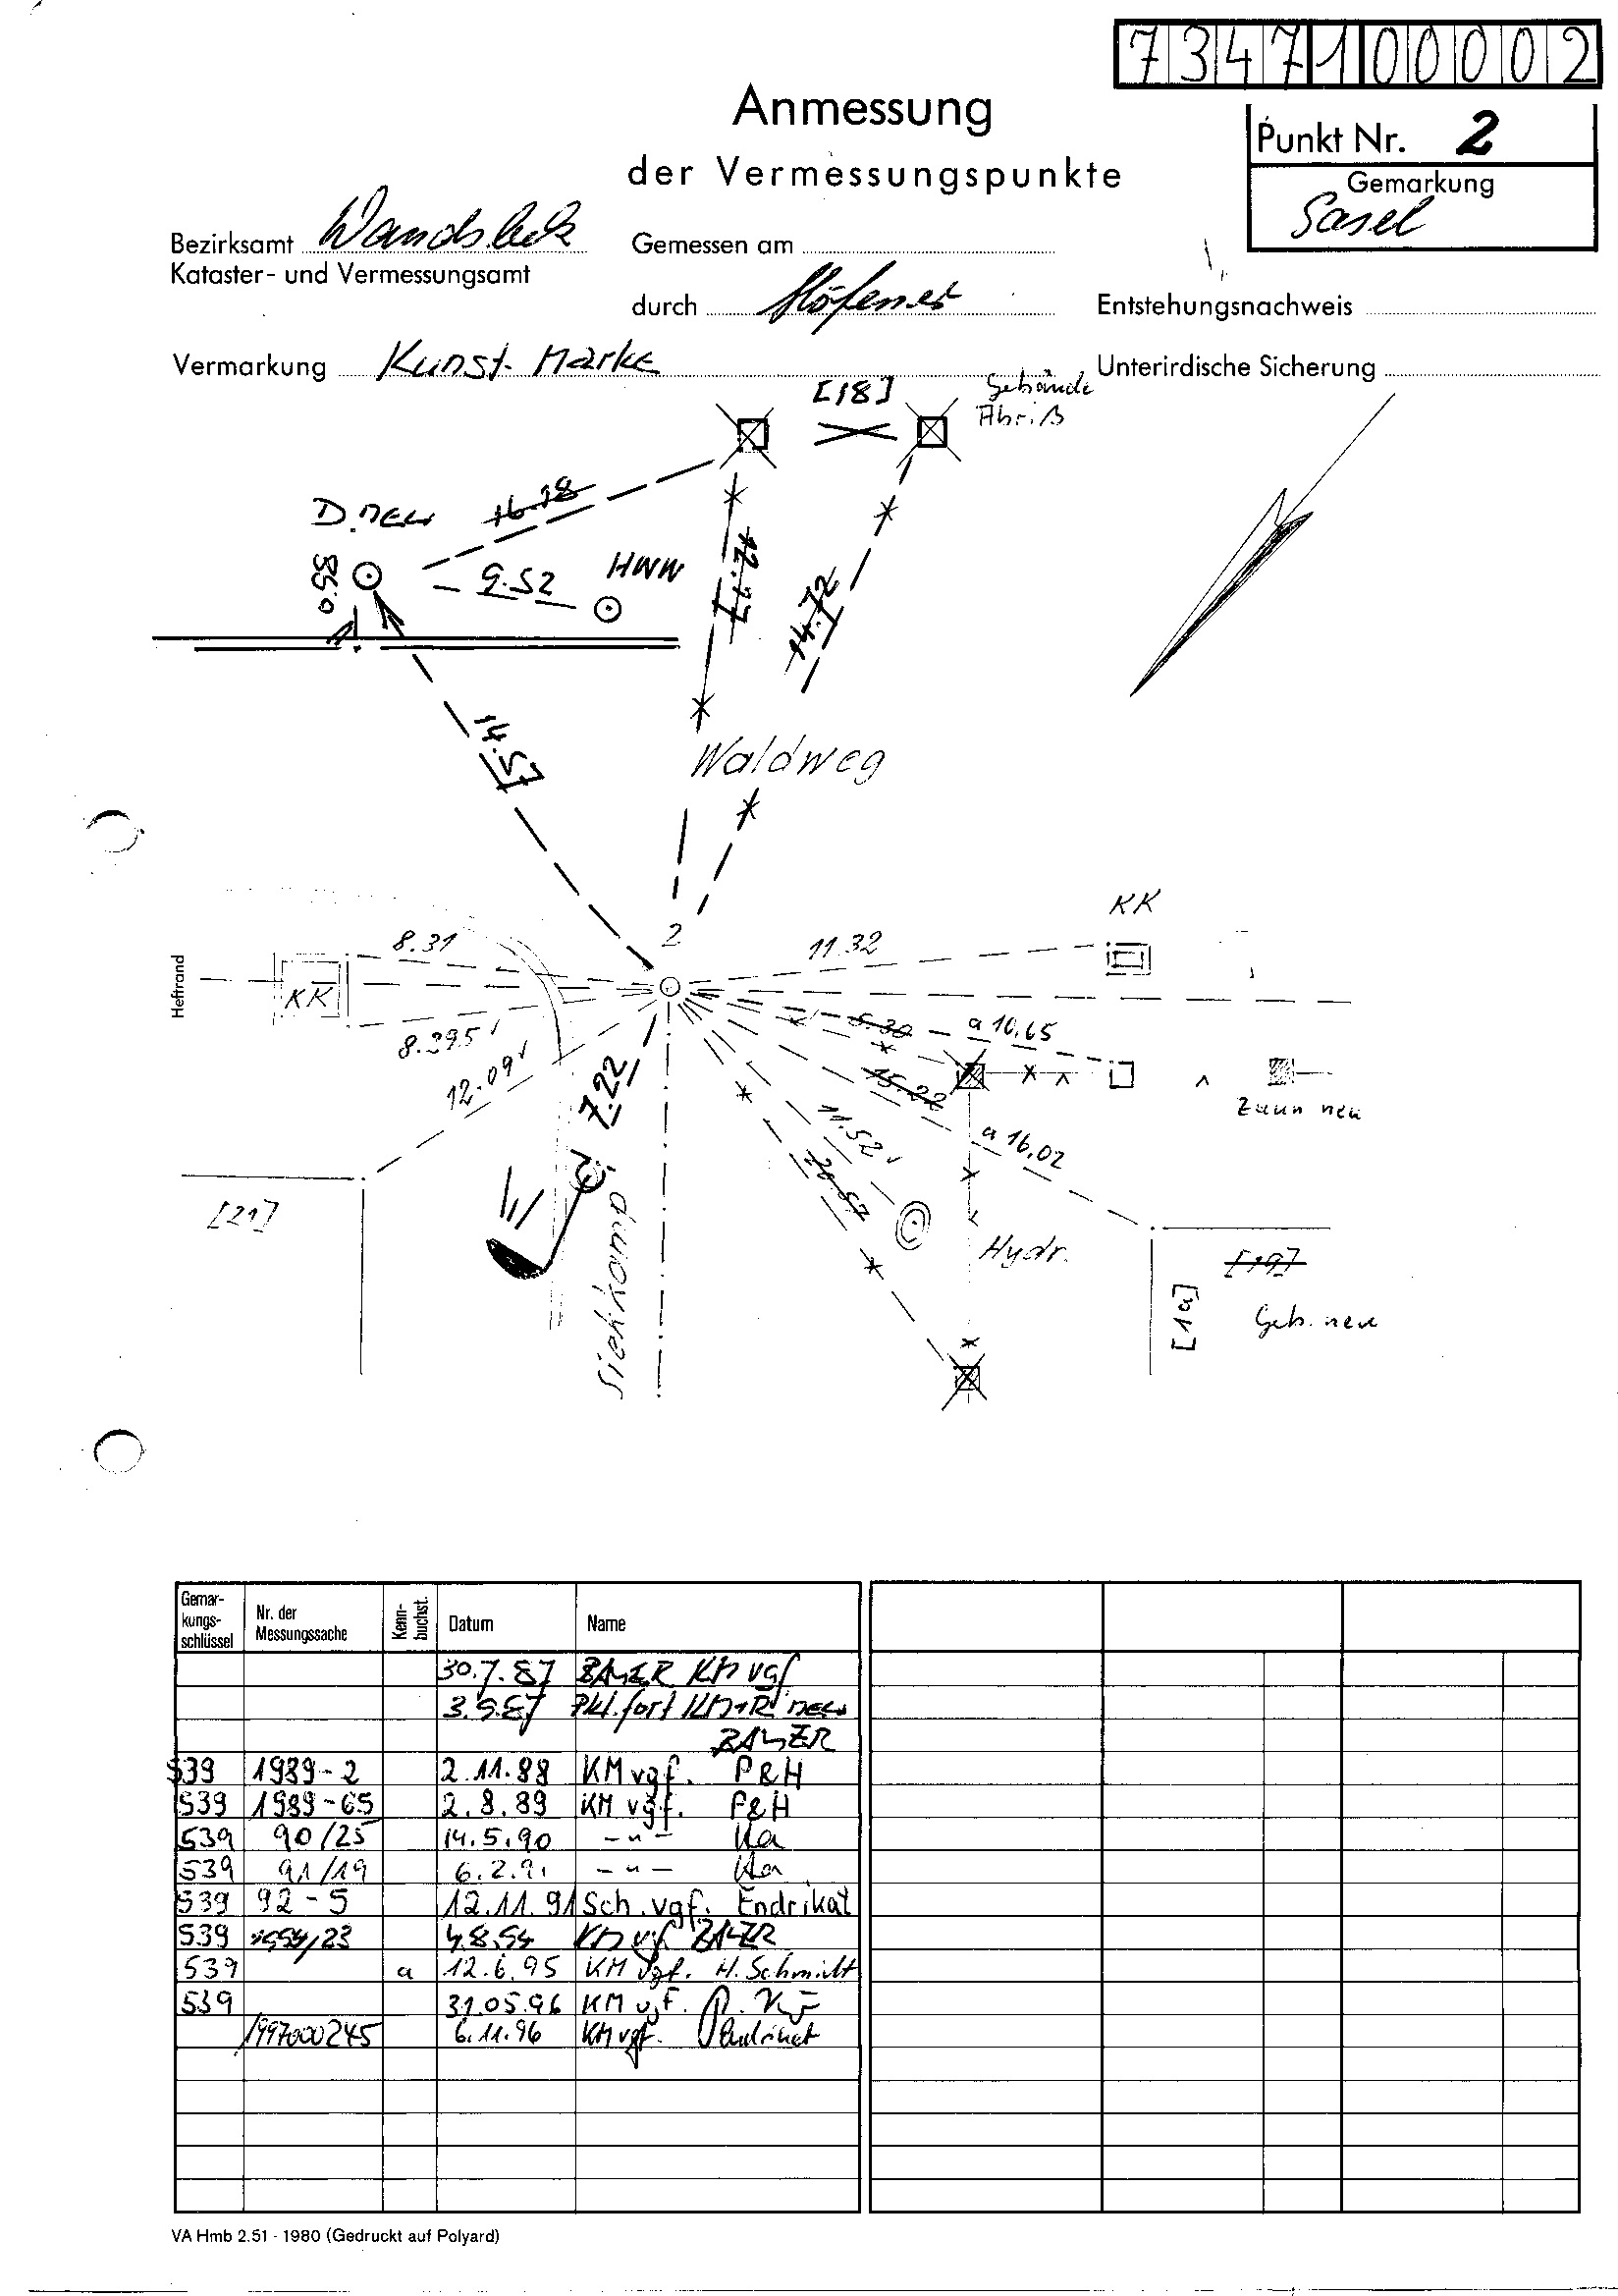 7347100002
Anmessung
der Vermessungspunkte
Punkt Nr. 2
Gemarkung
Sasel
Bezirksamt Wandsbek
Kataster- und Vermessungsamt
Gemessen am
durch
Entstehungsnachweis
Vermarkung Kunst. Marke
Unterirdische Sicherung
[18]
Gebäude
Abriß
16.18
D.neu
0.58
9.52
HWW
12.47
14.72
14.57
Waldweg
KK
2
8.31
11.32
Heftrand
KK
8.295
5.30
a 10,65
12.09
7.22
15.22
Zaun neu
11.52
a 16,02
20.57
[21]
Siekkamp
Hydr.
[19]
[1a]
Geb. neu
Gemar-
kungs-
schlüssel
Nr. der
Messungssache
Kenn-
buchst.
Datum
Name
30.7.87 BAUER KM vgf
3.9.87 Pkt. fort KM+R neu
BAUER
539 1989-2 2.11.88 KM vgf. P&H
539 1989-65 2.8.89 KM vgf. P&H
539 90/25 14.5.90 -"- Ka
539 91/19 6.2.91 -"- Ka
539 92-5 12.11.91 Sch. vgf. Endrikat
539 1994/23 4.8.94 KM vgf BAUER
539 a 12.6.95 KM vgf. H. Schmidt
539 31.05.96 KM vgf.
1997000245 6.11.96 KM vgf. Endrikat
VA Hmb 2.51 - 1980 (Gedruckt auf Polyard)